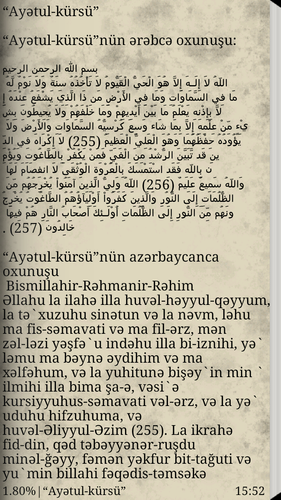 “Ayətul-kürsü”
“Ayətul-kürsü”nün ərəbcə oxunuşu:
بسم الله الرحمن الرحيم
اللّهُ لاَ إِلَـهَ إِلاَّ هُوَ الْحَيُّ الْقَيُّومُ لاَ تَأْخُذُهُ سِنَةٌ وَلاَ نَوْمٌ لَّهُ
مَا فِي السَّمَاوَاتِ وَمَا فِي الأَرْضِ مَن ذَا الَّذِي يَشْفَعُ عِنْدَهُ إِ
لاَّ بِإِذْنِهِ يَعْلَمُ مَا بَيْنَ أَيْدِيهِمْ وَمَا خَلْفَهُمْ وَلاَ يُحِيطُونَ بِشَ
يْءٍ مِّنْ عِلْمِهِ إِلاَّ بِمَا شَاء وَسِعَ كُرْسِيُّهُ السَّمَاوَاتِ وَالأَرْضَ وَلاَ
يَؤُودُهُ حِفْظُهُمَا وَهُوَ الْعَلِيُّ الْعَظِيمُ (255) لاَ إِكْرَاهَ فِي الدِّ
ينِ قَد تَّبَيَّنَ الرُّشْدُ مِنَ الْغَيِّ فَمَنْ يَكْفُرْ بِالطَّاغُوتِ وَيُؤْمِ
ن بِاللّهِ فَقَدِ اسْتَمْسَكَ بِالْعُرْوَةِ الْوُثْقَىَ لاَ انفِصَامَ لَهَا
وَاللّهُ سَمِيعٌ عَلِيمٌ (256) اللّهُ وَلِيُّ الَّذِينَ آمَنُواْ يُخْرِجُهُم مِّنَ
الظُّلُمَاتِ إِلَى النُّوُرِ وَالَّذِينَ كَفَرُواْ أَوْلِيَآؤُهُمُ الطَّاغُوتُ يُخْرِجُ
ونَهُم مِّنَ النُّورِ إِلَى الظُّلُمَاتِ أُوْلَـئِكَ أَصْحَابُ النَّارِ هُمْ فِيهَا
خَالِدُونَ (257) .
“Ayətul-kürsü”nün azərbaycanca
oxunuşu
Bismillahir-Rəhmanir-Rəhim
Əllahu la ilahə illa huvəl-həyyul-qəyyum,
la tə`xuzuhu sinətun və la nəvm, ləhu
ma fis-səmavati və ma fil-ərz, mən
zəl-ləzi yəşfə`u indəhu illa bi-iznihi, yə`
ləmu ma bəynə əydihim və ma
xəlfəhum, və la yuhitunə bişəy`in min `
ilmihi illa bima şa-ə, vəsi`ə
kursiyyuhus-səmavati vəl-ərz, və la yə`
uduhu hifzuhuma, və
huvəl-Əliyyul-Əzim (255). La ikrahə
fid-din, qəd təbəyyənər-ruşdu
minəl-ğəyy, fəmən yəkfur bit-tağuti və
yu`min billahi fəqədis-təmsəkə
1.80% “Ayətul-kürsü” 15:52